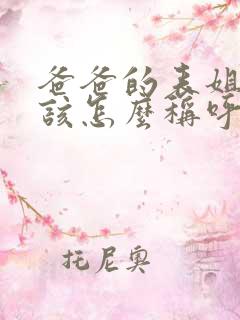 爸爸的表姐
该怎麼稱呼
托尼奥